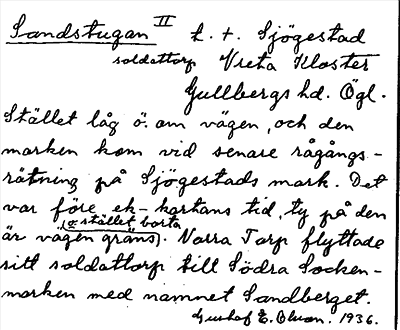 Sandstugan II t. t. Sjögestad
soldattorp Vreta Kloster
Gullbergs hd. Ögl.
Stället låg ö. om vägen, och den
marken kom vid senare rågångs-
rätning på Sjögestads mark. Det
var före ek-kartans tid, ty på den
(o. stället borta
är vägen gräns). Norra Torp flyttade
sitt soldattorp till Södra Socken-
marken med namnet Sandberget.
Gustaf E. Olson. 1936.